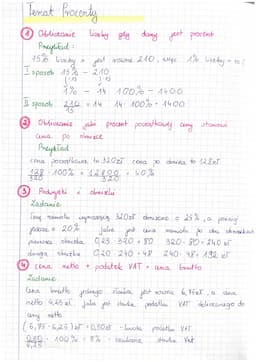 Temat Procenty
① Obliczanie liczby gdy dany jest procent
Przykład:
15% liczby x jest równe 210, więc 1% liczby =
I sposób 15% - 210
1% - 14 100% - 1400
II sposób 210/15 = 14 14 · 100% = 1400
② Obliczanie jaki procent początkowej ceny stanowi
cena po obniżce
Przykład
cena początkowa to 320 zł cena po obniżce to 128 zł
128/320 · 100% = 12800/320 = 40%
③ Podwyżki i obniżki
Zadanie
Cenę namiotu wynoszącą 320 zł obniżono o 25%, a później
o 20% jaka jest cena namiotu po obu obniżkach
pierwsza obniżka 0,25 · 320 = 80 320 - 80 = 240 zł
druga obniżka 0,20 · 240 = 48 240 - 48 = 192 zł
④ cena netto + podatek VAT = cena brutto
Zadanie
Cena brutto jednego jest równa 6,75 zł, a cena
netto 6,25 zł. Jaka jest stawka podatku VAT doliczanego do
ceny netto
(6,75 - 6,25) zł = 0,50 zł - kwota podatku VAT
0,50/6,25 · 100% = 8% - stawka VAT